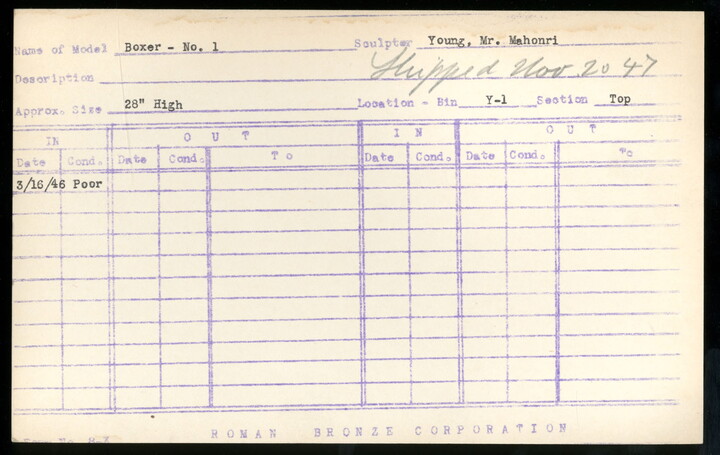 Name of Model Boxer - No. 1 Sculptor Young, Mr. Mahonri
Description Shipped Nov. 20 47
Approx. Size 28" High Location - Bin Y-1 Section Top
IN OUT IN OUT
Date Cond. Date Cond. To Date Cond. Date Cond. To
3/16/46 Poor
ROMAN BRONZE CORPORATION